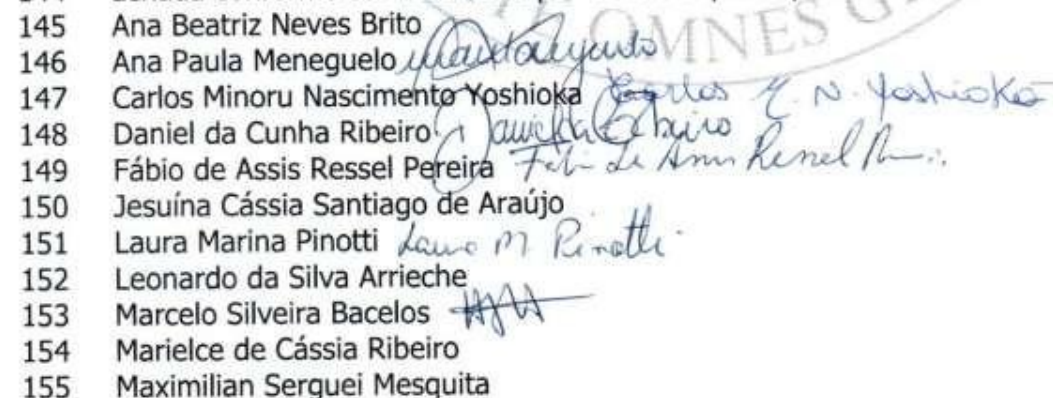 OMNES
145 Ana Beatriz Neves Brito
146 Ana Paula Meneguelo
147 Carlos Minoru Nascimento Yoshioka Carlos M. N. Yoshioka
148 Daniel da Cunha Ribeiro
149 Fábio de Assis Ressel Pereira
150 Jesuína Cássia Santiago de Araújo
151 Laura Marina Pinotti Laura M Pinotti
152 Leonardo da Silva Arrieche
153 Marcelo Silveira Bacelos
154 Marielce de Cássia Ribeiro
155 Maximilian Serguei Mesquita